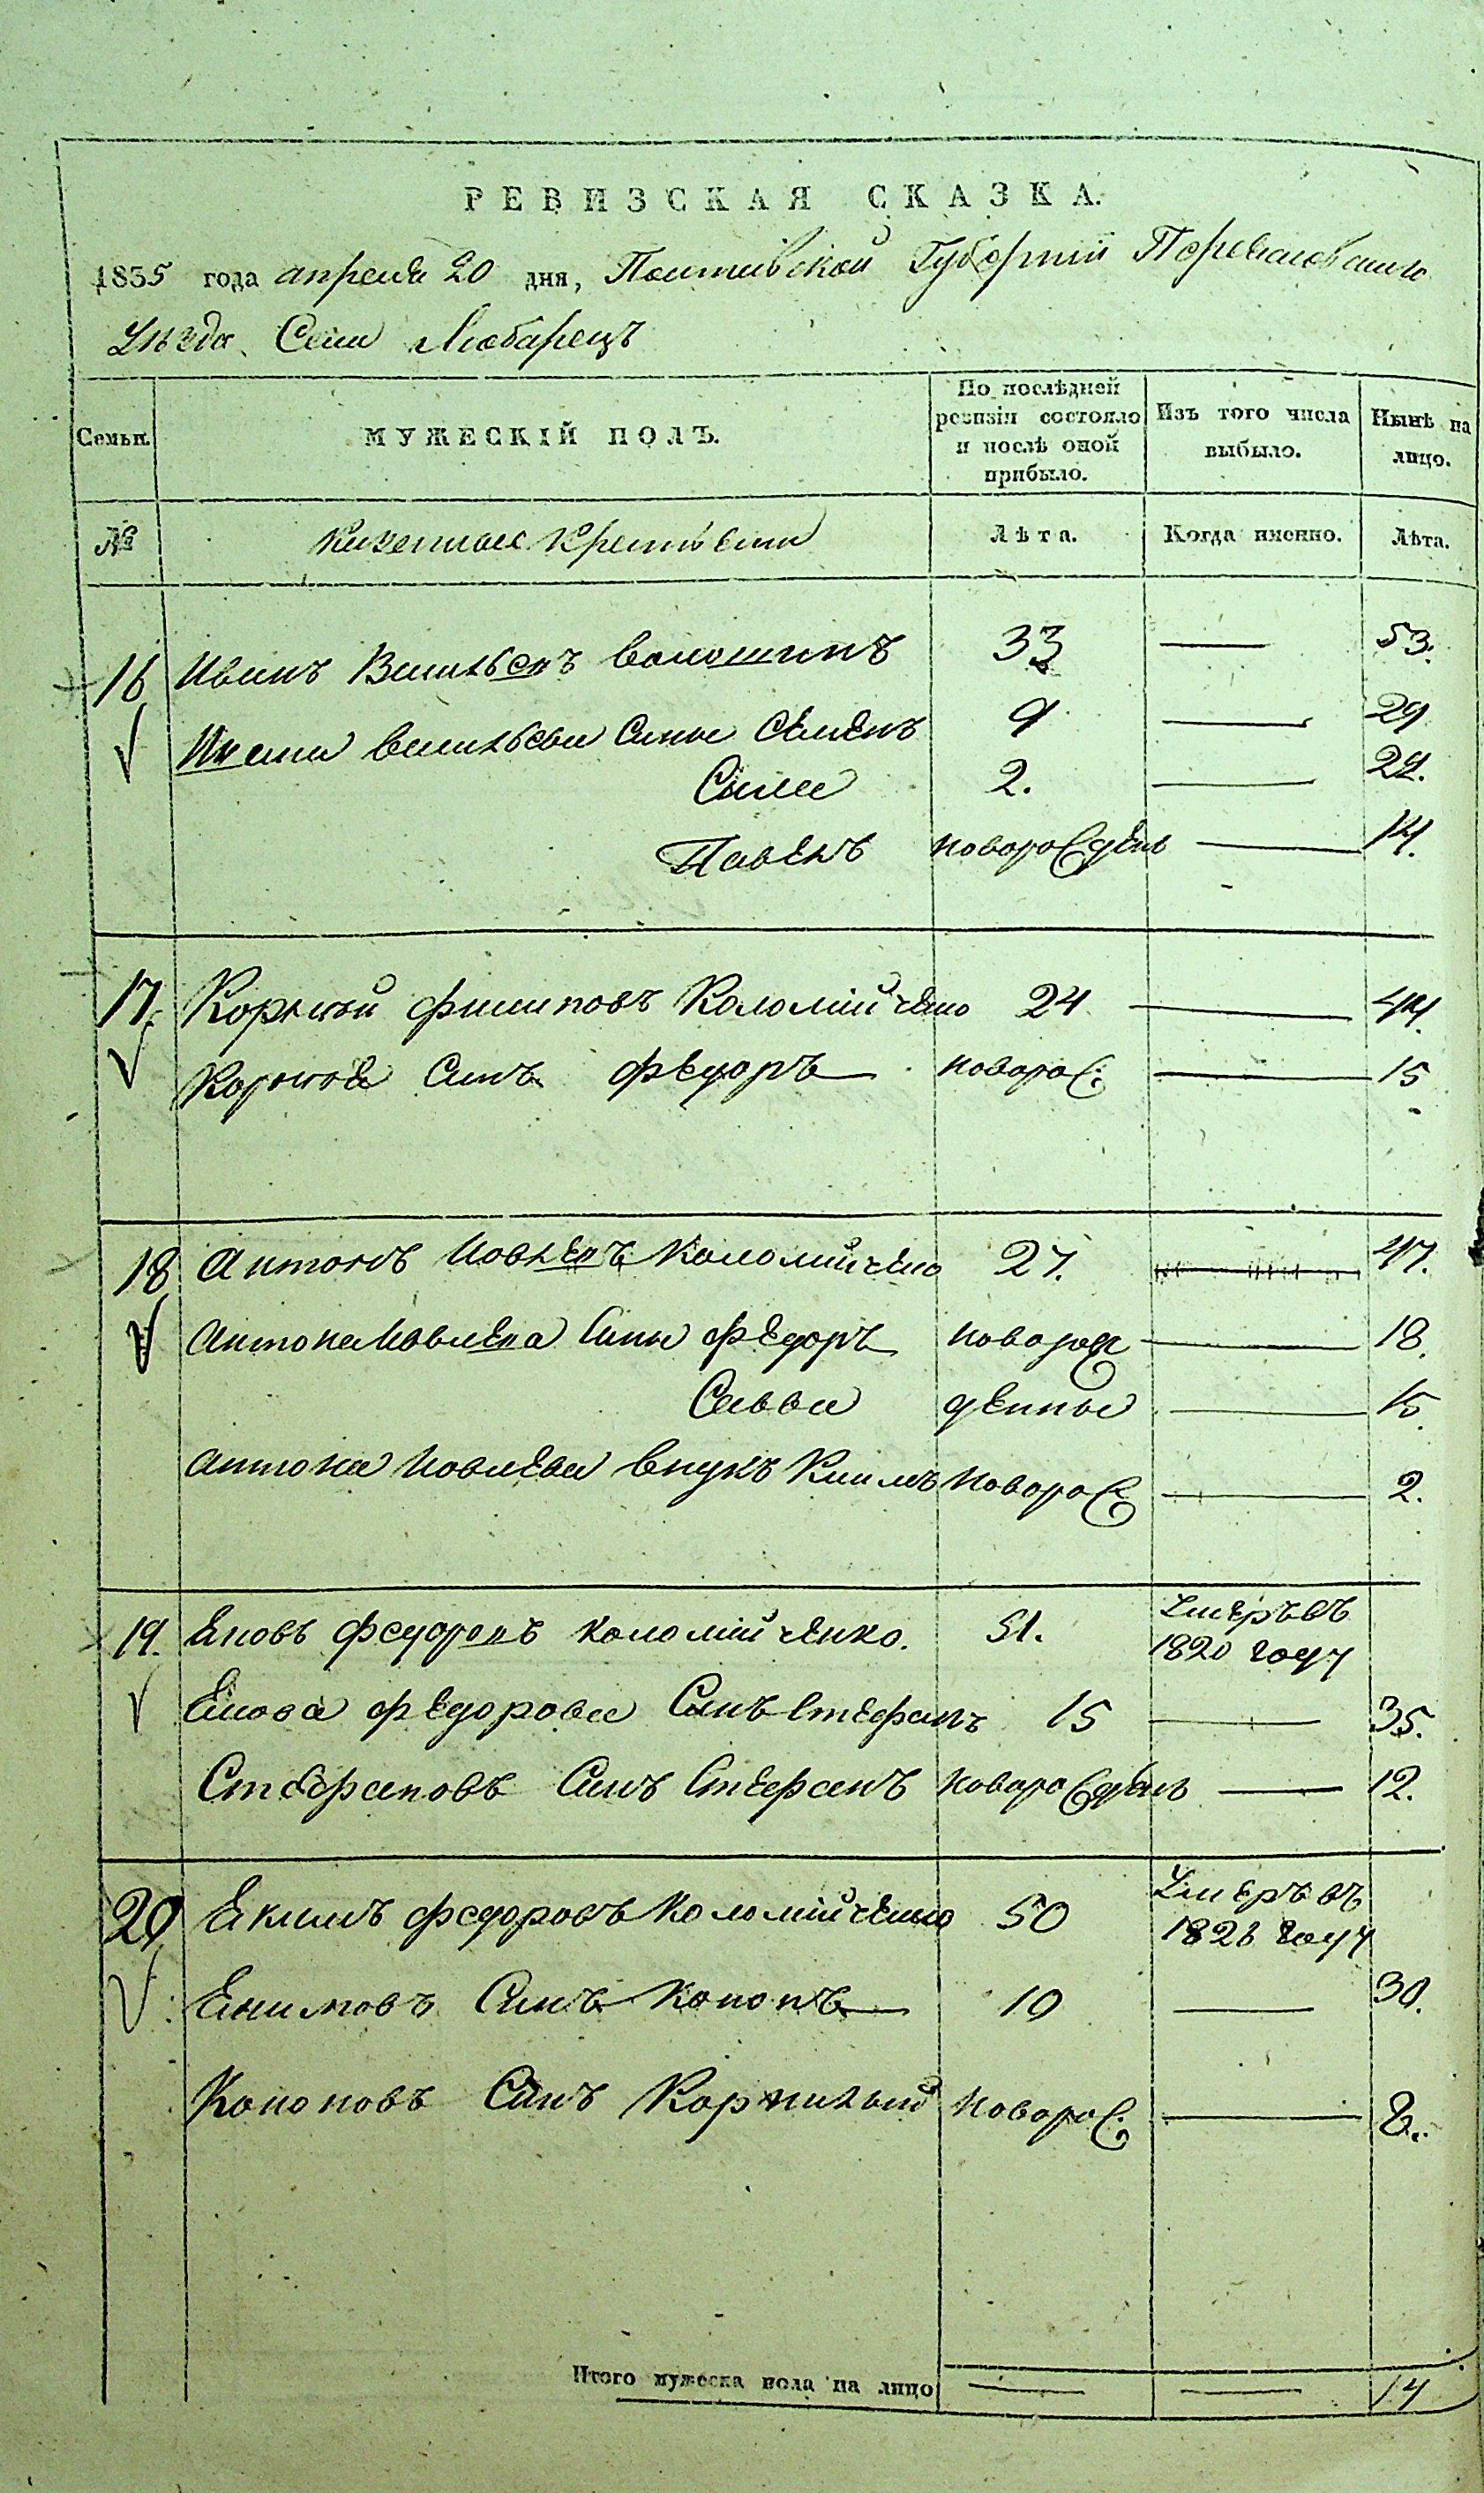 РЕВИЗСКАЯ СКАЗКА.
1835 года апреля 20 дня, Полтавской Губернии Переяславскаго
Уезда Села Любарецъ
Семьи. МУЖЕСКІЙ ПОЛЪ. По послѣдней ревизіи состояло и послѣ оной прибыло. Изъ того числа выбыло. Нынѣ на лицо.
№ Казенные Крестьяне Лѣта. Когда именно. Лѣта.
16 Иванъ Васильевъ Волошинъ 33 — 53.
Ивана Васильева Сыны Семенъ 9 — 29
Сила 2. — 22.
Павелъ новорожден — 14.
17. Корней Филиповъ Коломийченко 24 — 44.
Корнея Синъ Федоръ новорож: — 15
18 Антонъ Иовлевъ Коломийченко 27. — 47.
Антона Иовлева Сыны Федоръ новорож — 18.
Савва денные — 15
Антона Иовлева внукъ Климъ новорож — 2.
19. Яковъ Федоровъ Коломийченко. 51. Умеръ въ 1820 году
Якова Федорова Синъ Стефанъ 15 — 35.
Стефановъ Синъ Стефанъ новорожден — 12.
20. Екимъ Федоровъ Коломийченко 50 Умеръ въ 1826 году
Екимовъ Синъ Кононъ 10 — 30.
Кононовъ Синъ Корнилий новорож: — 8.
Итого мужеска пола на лицо — — 14